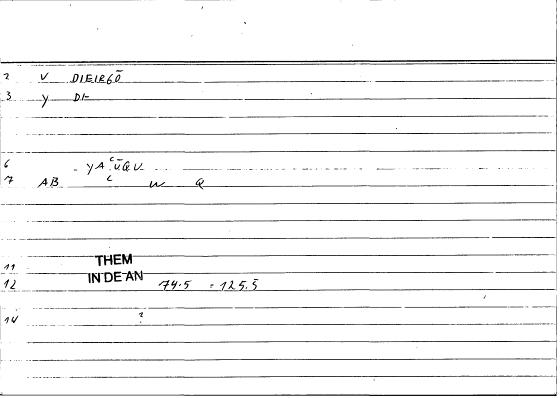 2 V DIEIR60
3 y DI-
6 - YA.ūQV
7 AB L W Q
11 THEM
12 IN DE AN 74.5 = 125.5
14 ?